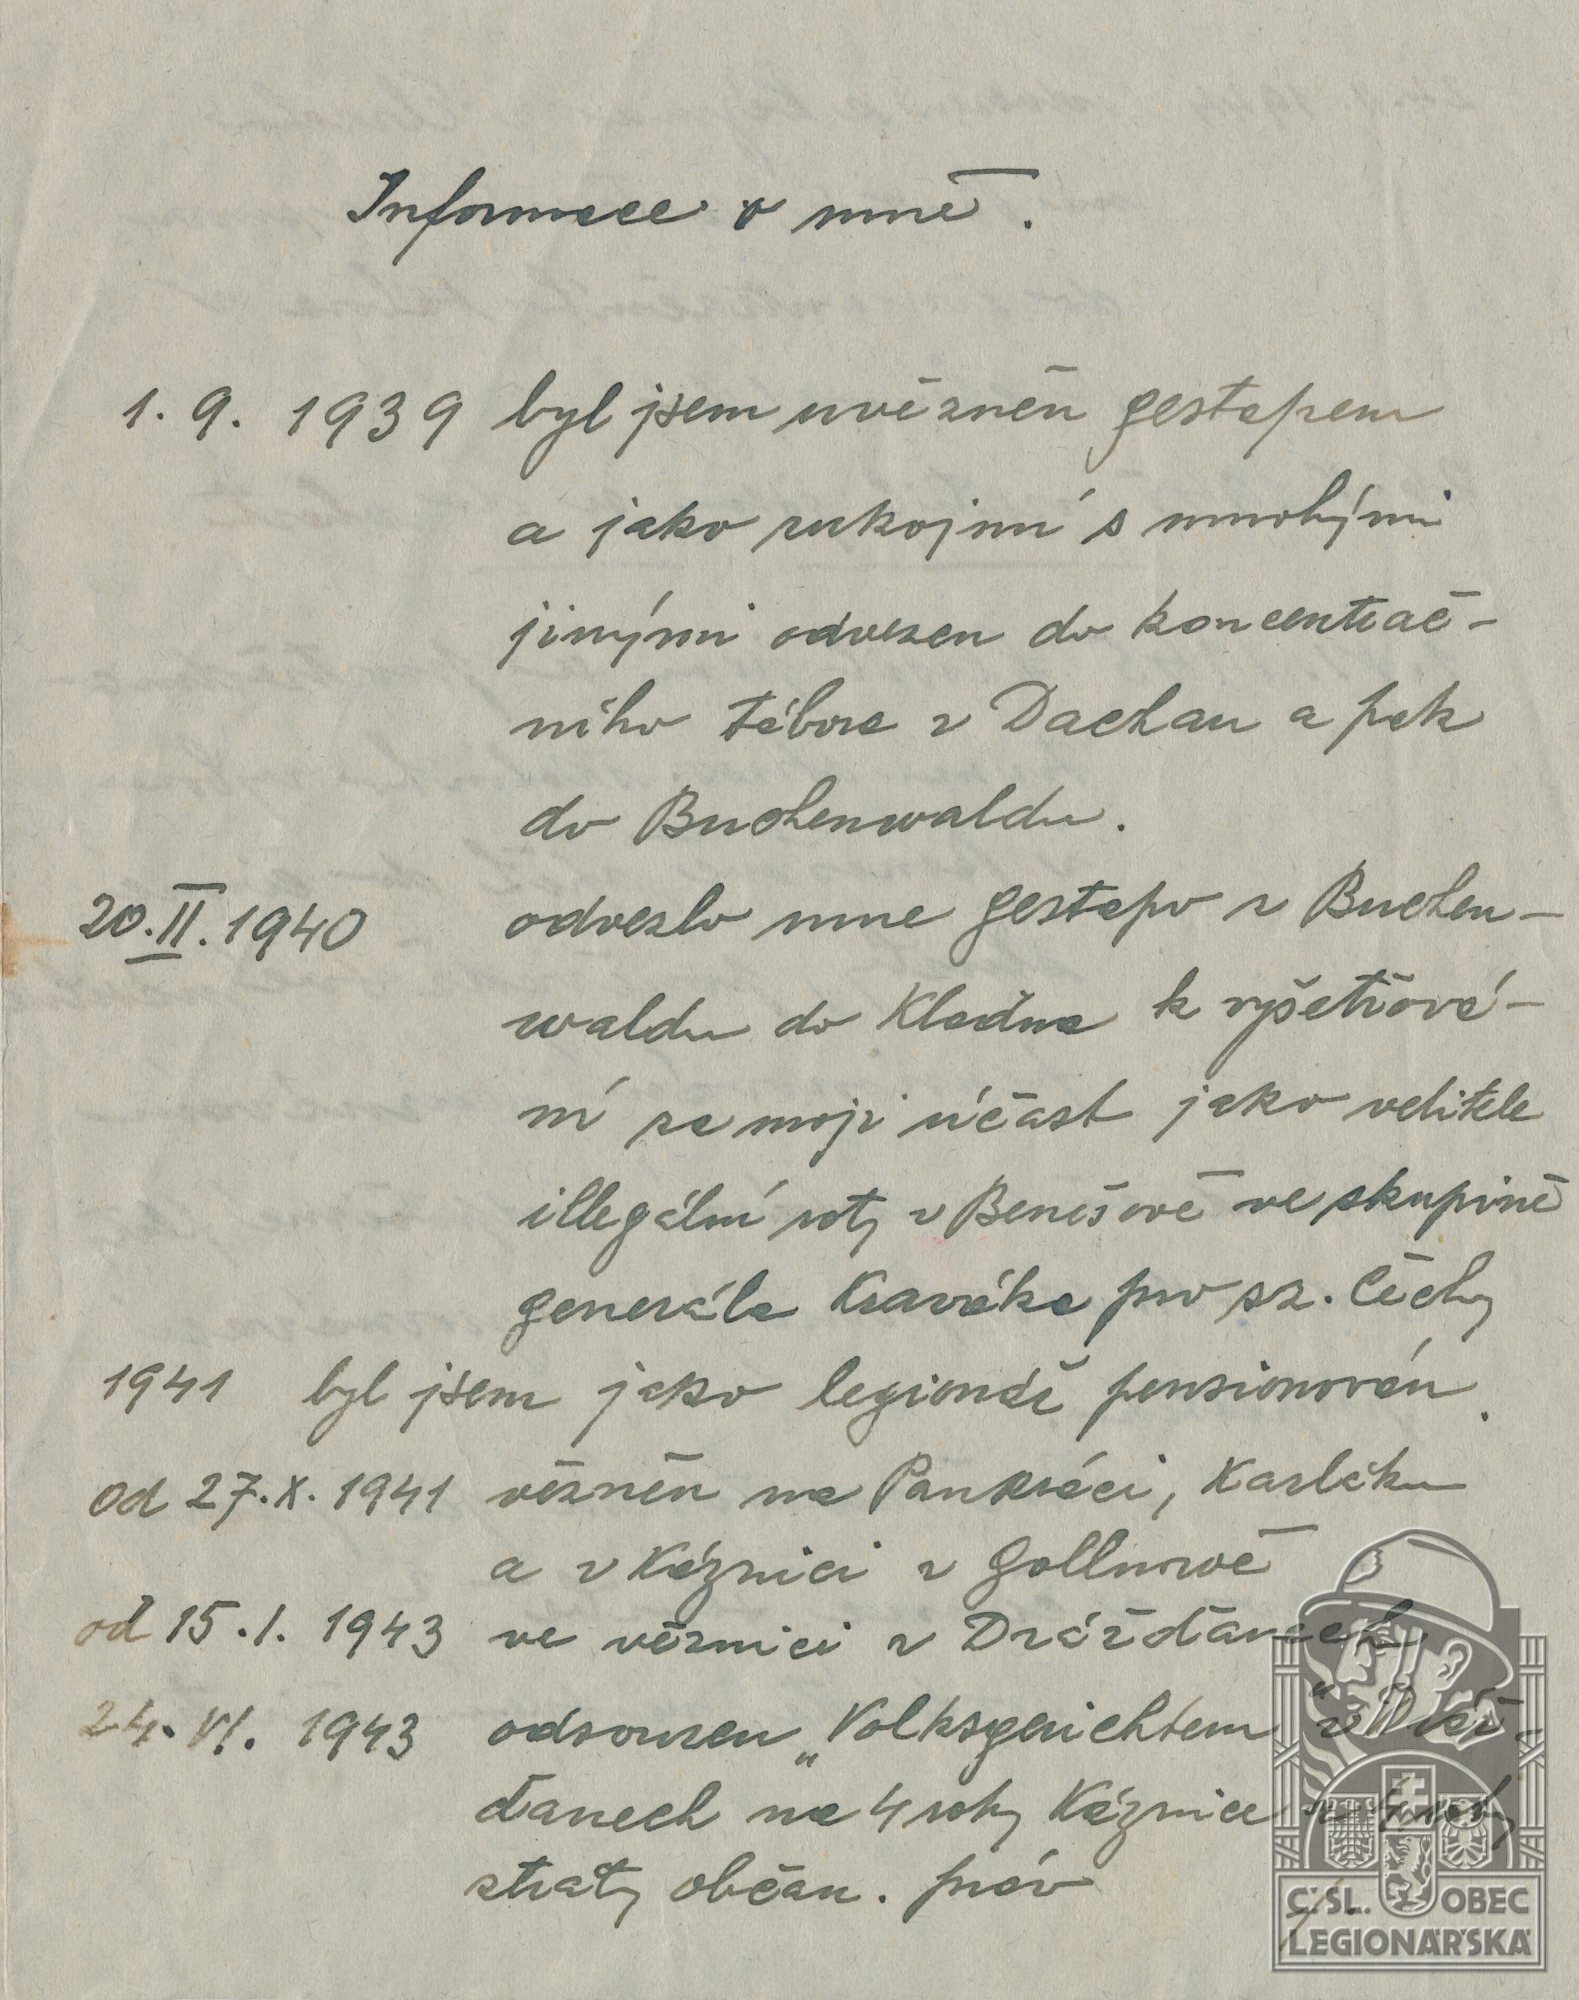 Informace o mně.
1. 9. 1939 byl jsem uvězněn gestapem
a jako rukojmí s mnohými
jinými odvezen do koncentrač-
ního tábora v Dachau a pak
do Buchenwaldu.
20. II. 1940 odvezlo mne gestapo z Buchen-
waldu do Kladna k vyšetřová-
ní za moji účast jako velitele
illegální roty v Benešově ve skupině
generála Kraváka pro sz. Čechy
1941 byl jsem jako legionář pensionován.
od 27. X. 1941 vězněn na Pankráci, Karláku
a v Káznici v Gollnowě
od 15. I. 1943 ve věznici v Drážďanech
24. VI. 1943 odsouzen „Volksgerichtem" v Dráž-
ďanech na 4 roky Káznice a 4 roky
ztráty občan. práv
Č.SL. OBEC
LEGIONÁŘSKÁ